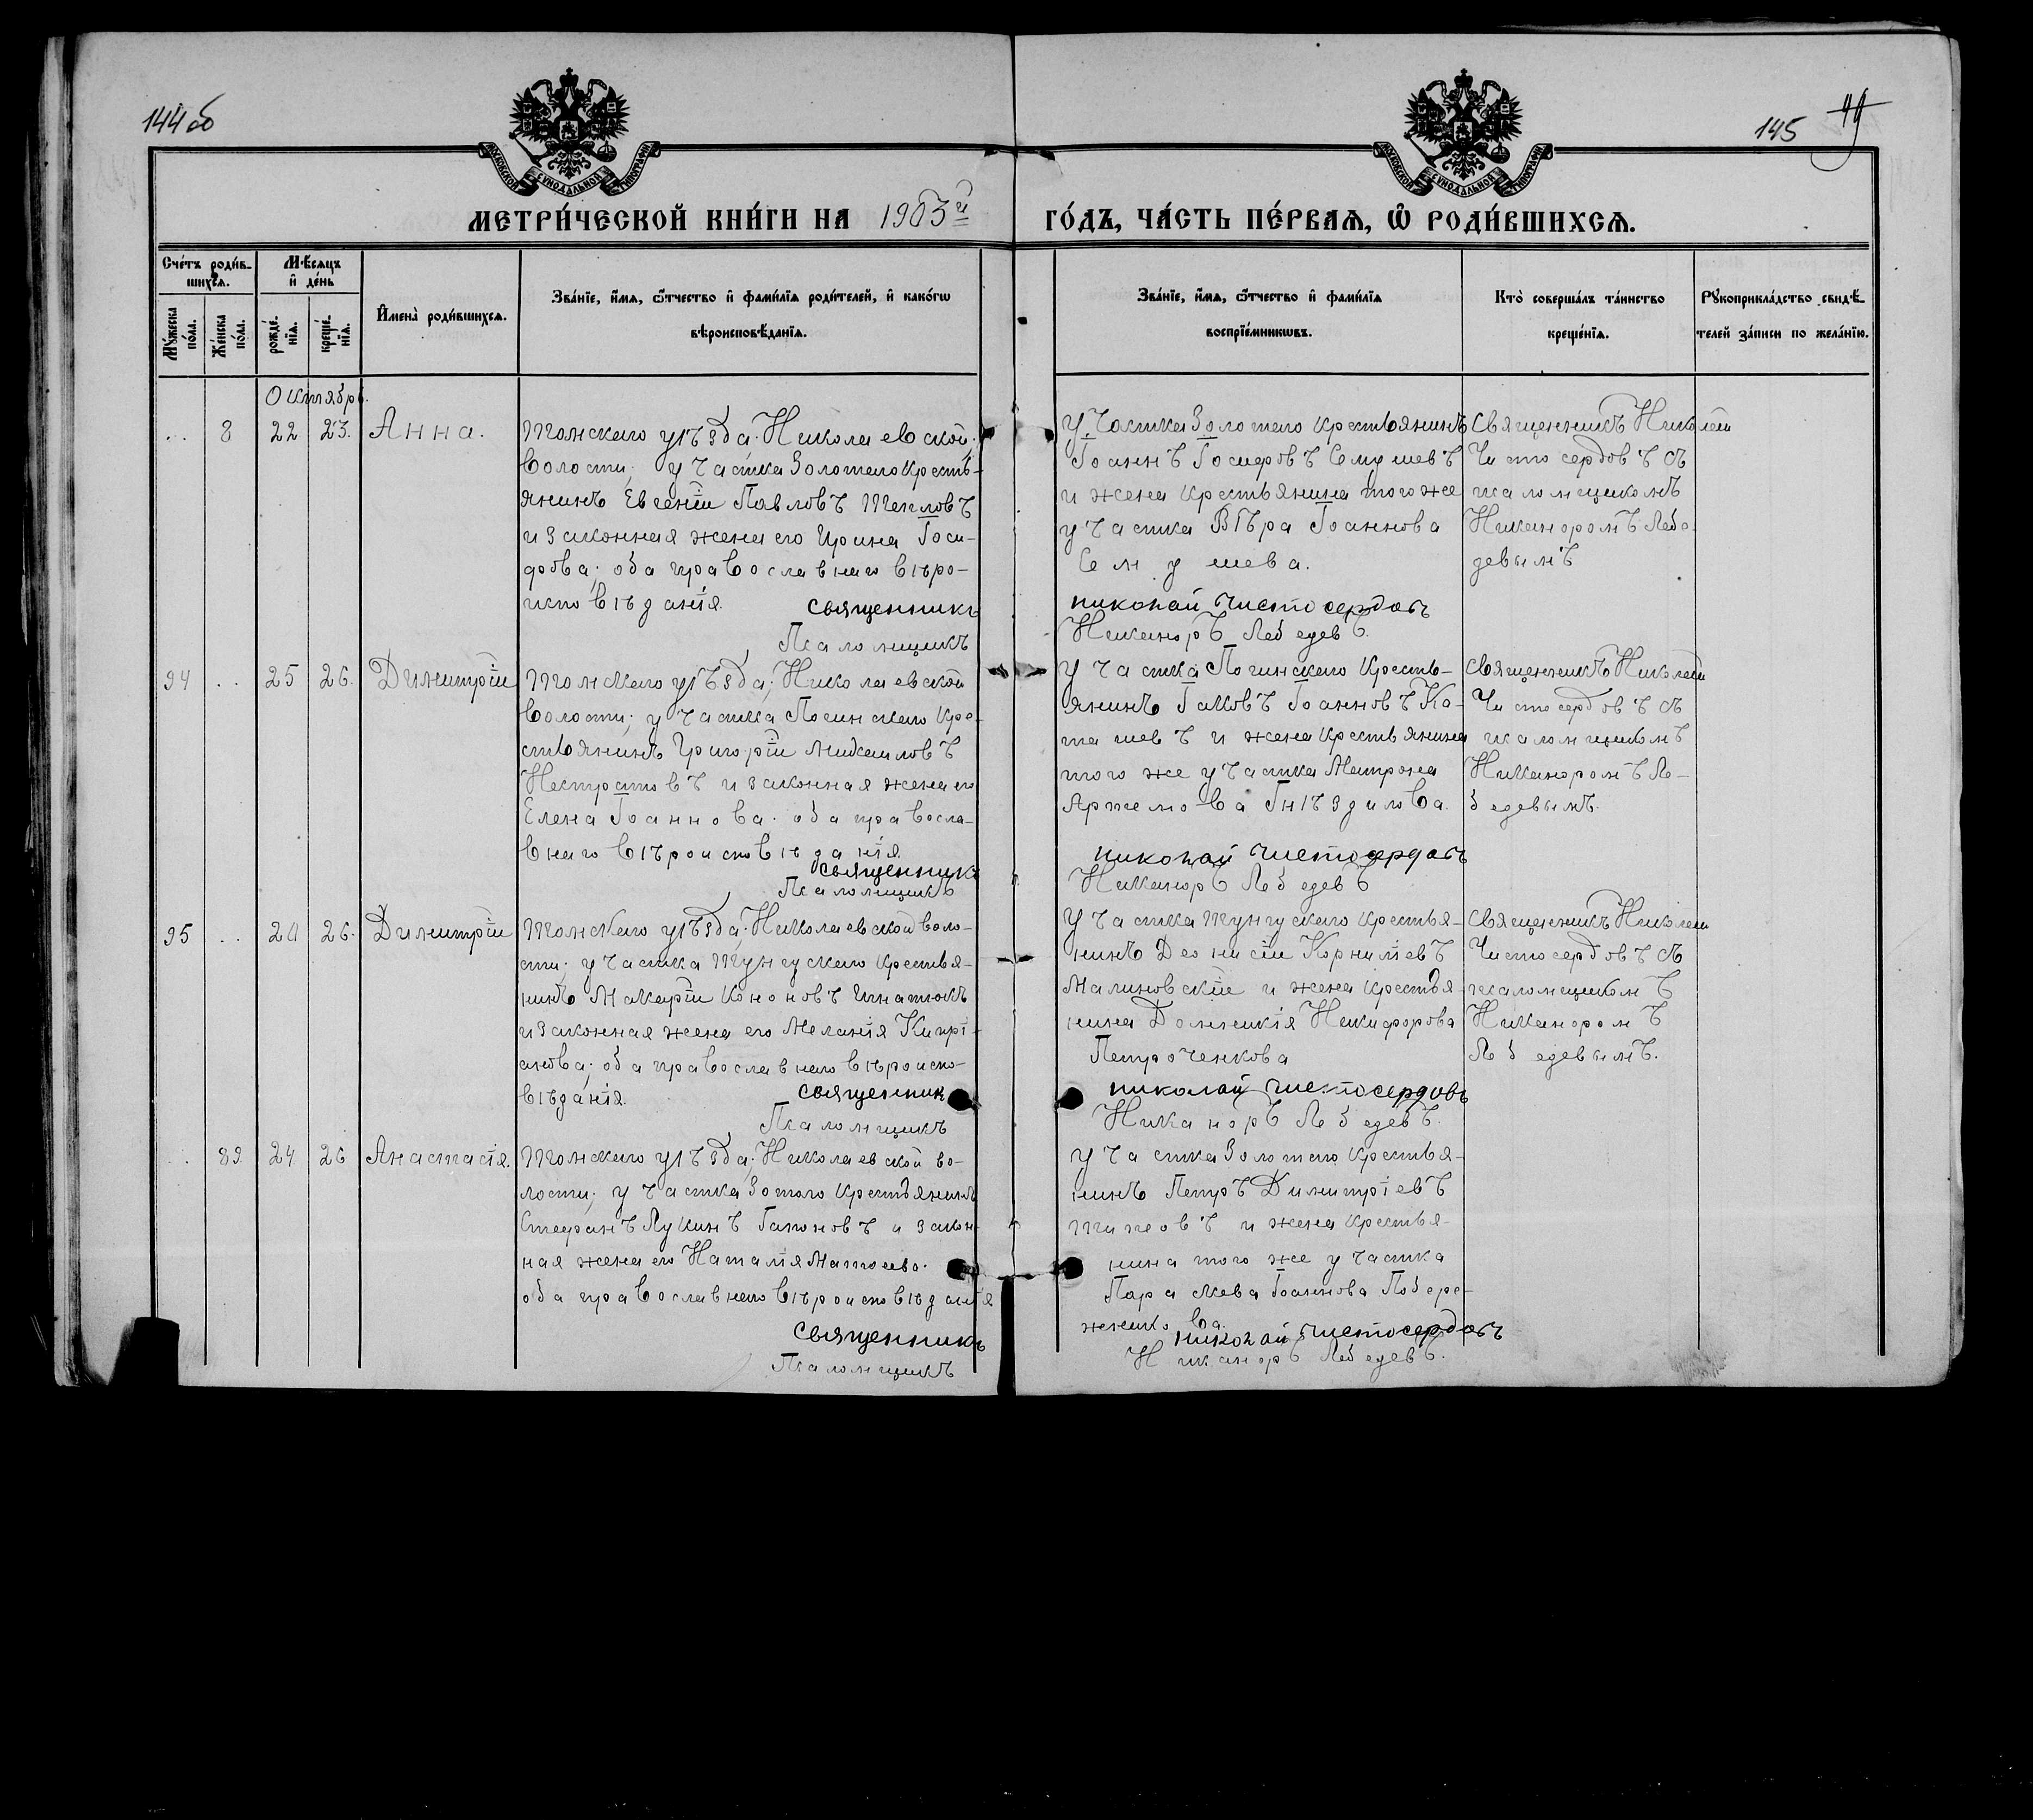 144об
145
49
МОСКОВСКОЙ СУНОДАЛЬНОЙ ТИПОГРАФІИ
МОСКОВСКОЙ СУНОДАЛЬНОЙ ТИПОГРАФІИ
МЕТРИ́ЧЕСКОЙ КНИ́ГИ НА 1903й ГО́ДЪ, ЧА́СТЬ ПЕ́РВАѦ, Ѡ҆ РОДИ́ВШИХСѦ.
Сче́тъ роди́в-
шихсѧ.
Мꙋ́жеска по́ла.
Же́нска по́ла.
М́ѣсѧцъ
и҆ де́нь
рожде́-
нїѧ.
креще́-
нїѧ.
И҆мена̀ роди́вшихсѧ.
Зва́нїе, и҆́мѧ, ѻ҆́тчество и҆ фами́лїѧ роди́телей, и҆ како́гѡ
вѣроисповѣ́данїѧ.
Зва́нїе, и҆́мѧ, ѻ҆́тчество и҆ фами́лїѧ
воспрїе́мникѡвъ.
Кто̀ соверша́лъ та́инство
креще́нїѧ.
Рꙋкоприкла́дство свидѣ́-
телей за́писи по жела́нїю.
Октябрь.
.. 8 22 23. Анна.
Томскаго уѣзда; Николаевской
волости; участка Золотого кресть-
янинъ Евгеній Павловъ Тепловъ
и законная жена его Ирина Іоси-
фова; оба православнаго вѣро-
исповѣданія.
Священникъ
Псаломщикъ
Участка Золотого крестьянинъ
Іоаннъ Іосифовъ Семушевъ
и жена крестьянина того же
участка Вѣра Іоаннова
Семушева.
Николай Чистосердовъ
Никаноръ Лебедевъ.
Священникъ Николай
Чистосердовъ съ
псаломщикомъ
Никаноромъ Лебе-
девымъ
94 .. 25 26. Димитрій
Томскаго уѣзда; Николаевской
волости; участка Погинскаго кре-
стьянинъ Григорій Михаиловъ
Нестратовъ и законная жена его
Елена Іоаннова. оба правосла-
внаго вѣроисповѣданія.
Священникъ
Псаломщикъ
Участка Погинскаго кресть-
янинъ Іаковъ Іоанновъ Ка-
ташевъ и жена крестьянина
того же участка Матрона
Артемова Гнѣздилова.
Николай Чистосердовъ
Никаноръ Лебедевъ
Священникъ Николай
Чистосердовъ съ
псаломщикомъ
Никаноромъ Ле-
бедевымъ.
95 .. 24 26. Димитрій
Томскаго уѣзда; Николаевской воло-
сти; участка Тунгускаго крестья-
нинъ Макарій Кононовъ Игнатюкъ
и законная жена его Меланія Кипрі-
анова; оба православнаго вѣроиспо-
вѣданія.
Священник
Псаломщикъ
Участка Тунгускаго крестья-
нинъ Деонисій Корниліевъ
Малиновскій и жена крестья-
нина Домникія Никифорова
Петроченкова
Николай Чистосердовъ
Никаноръ Лебедевъ.
Священникъ Николай
Чистосердовъ съ
псаломщикомъ
Никаноромъ
Лебедевымъ.
.. 89. 24 26 Анастасія.
Томскаго уѣзда; Николаевской во-
лости; участка Зотого крестьянинъ
Стефанъ Лукинъ Гапоновъ и закон-
ная жена его Наталія Матѳеева.
оба православнаго вѣроисповѣданія
Священникъ
Псаломщикъ
Участка Золотого крестья-
нинъ Петръ Димитріевъ
Титовъ и жена крестья-
нина того же участка
Параскева Іоаннова Побере-
женко ва.
Николай Чистосердовъ
Никаноръ Лебедевъ.